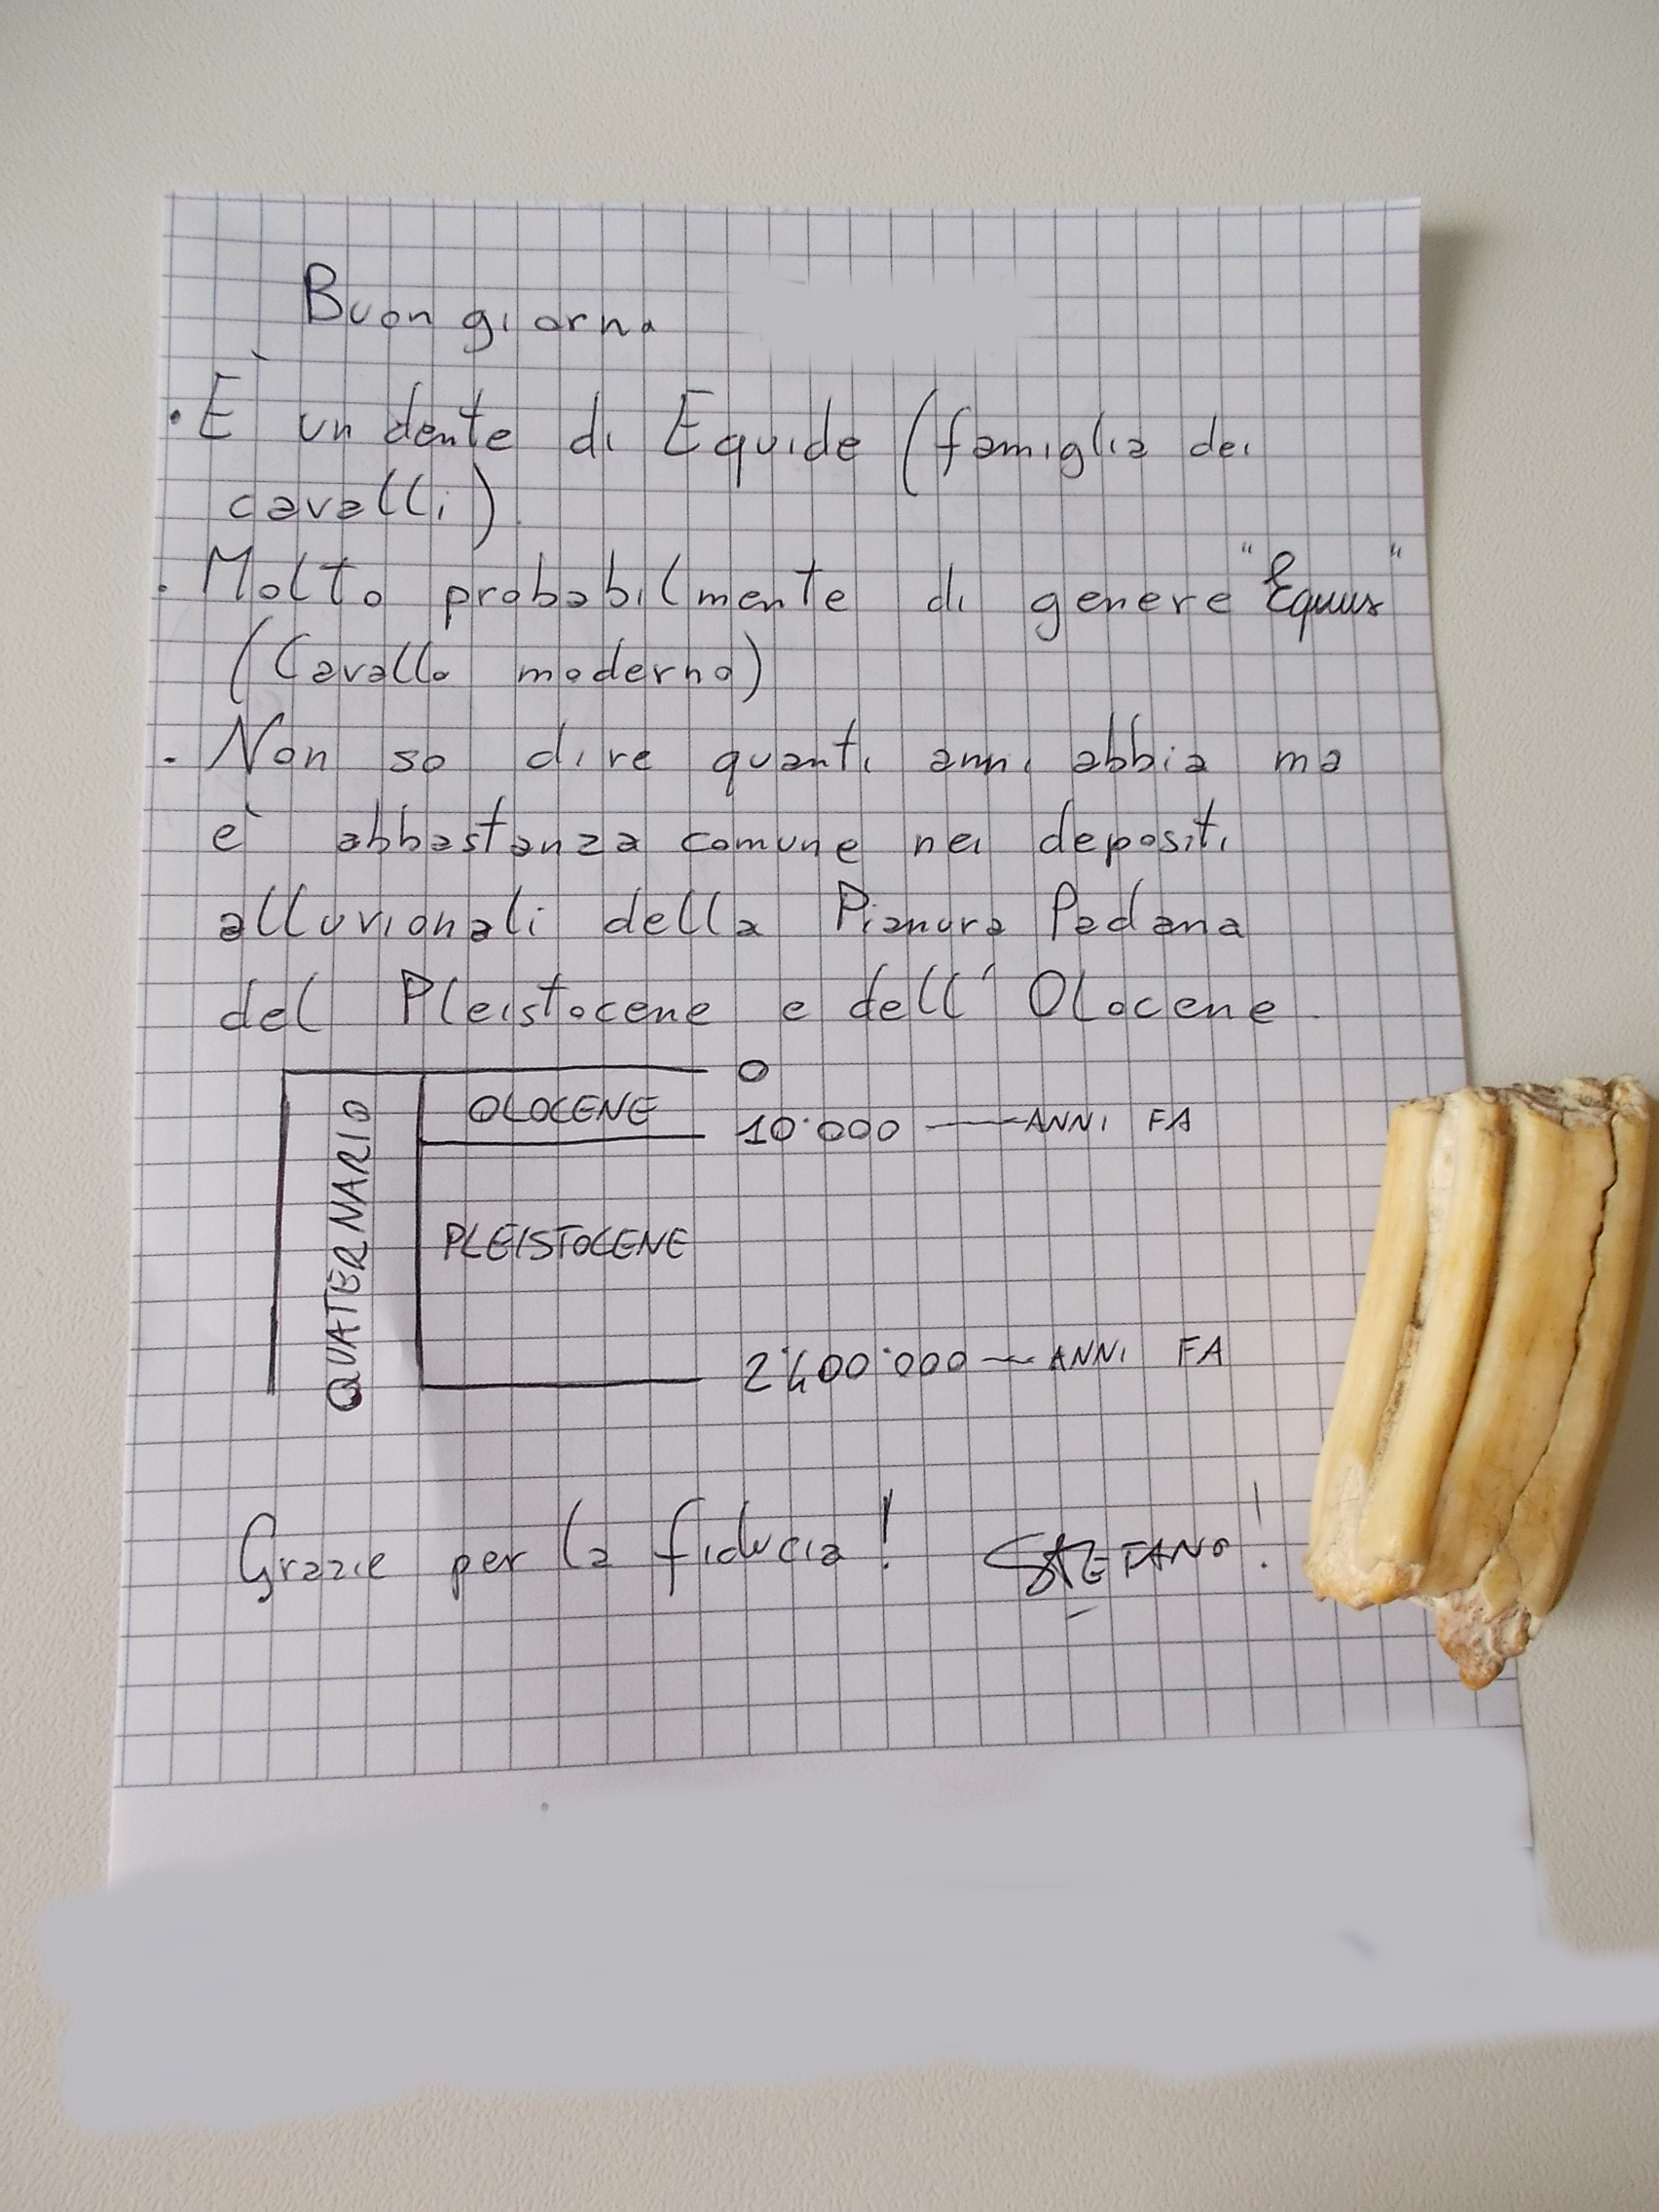 Buongiorno
. È un dente di Equide (famiglia dei
cavalli).
. Molto probabilmente di genere "Equus"
(Cavallo moderno)
. Non so dire quanti anni abbia ma
è abbastanza comune nei depositi
alluvionali della Pianura Padana
del Pleistocene e dell'Olocene.
0
OLOCENE
10'000 — ANNI FA
QUATERNARIO
PLEISTOCENE
2'400'000 — ANNI FA
Grazie per la fiducia! STEFANO!